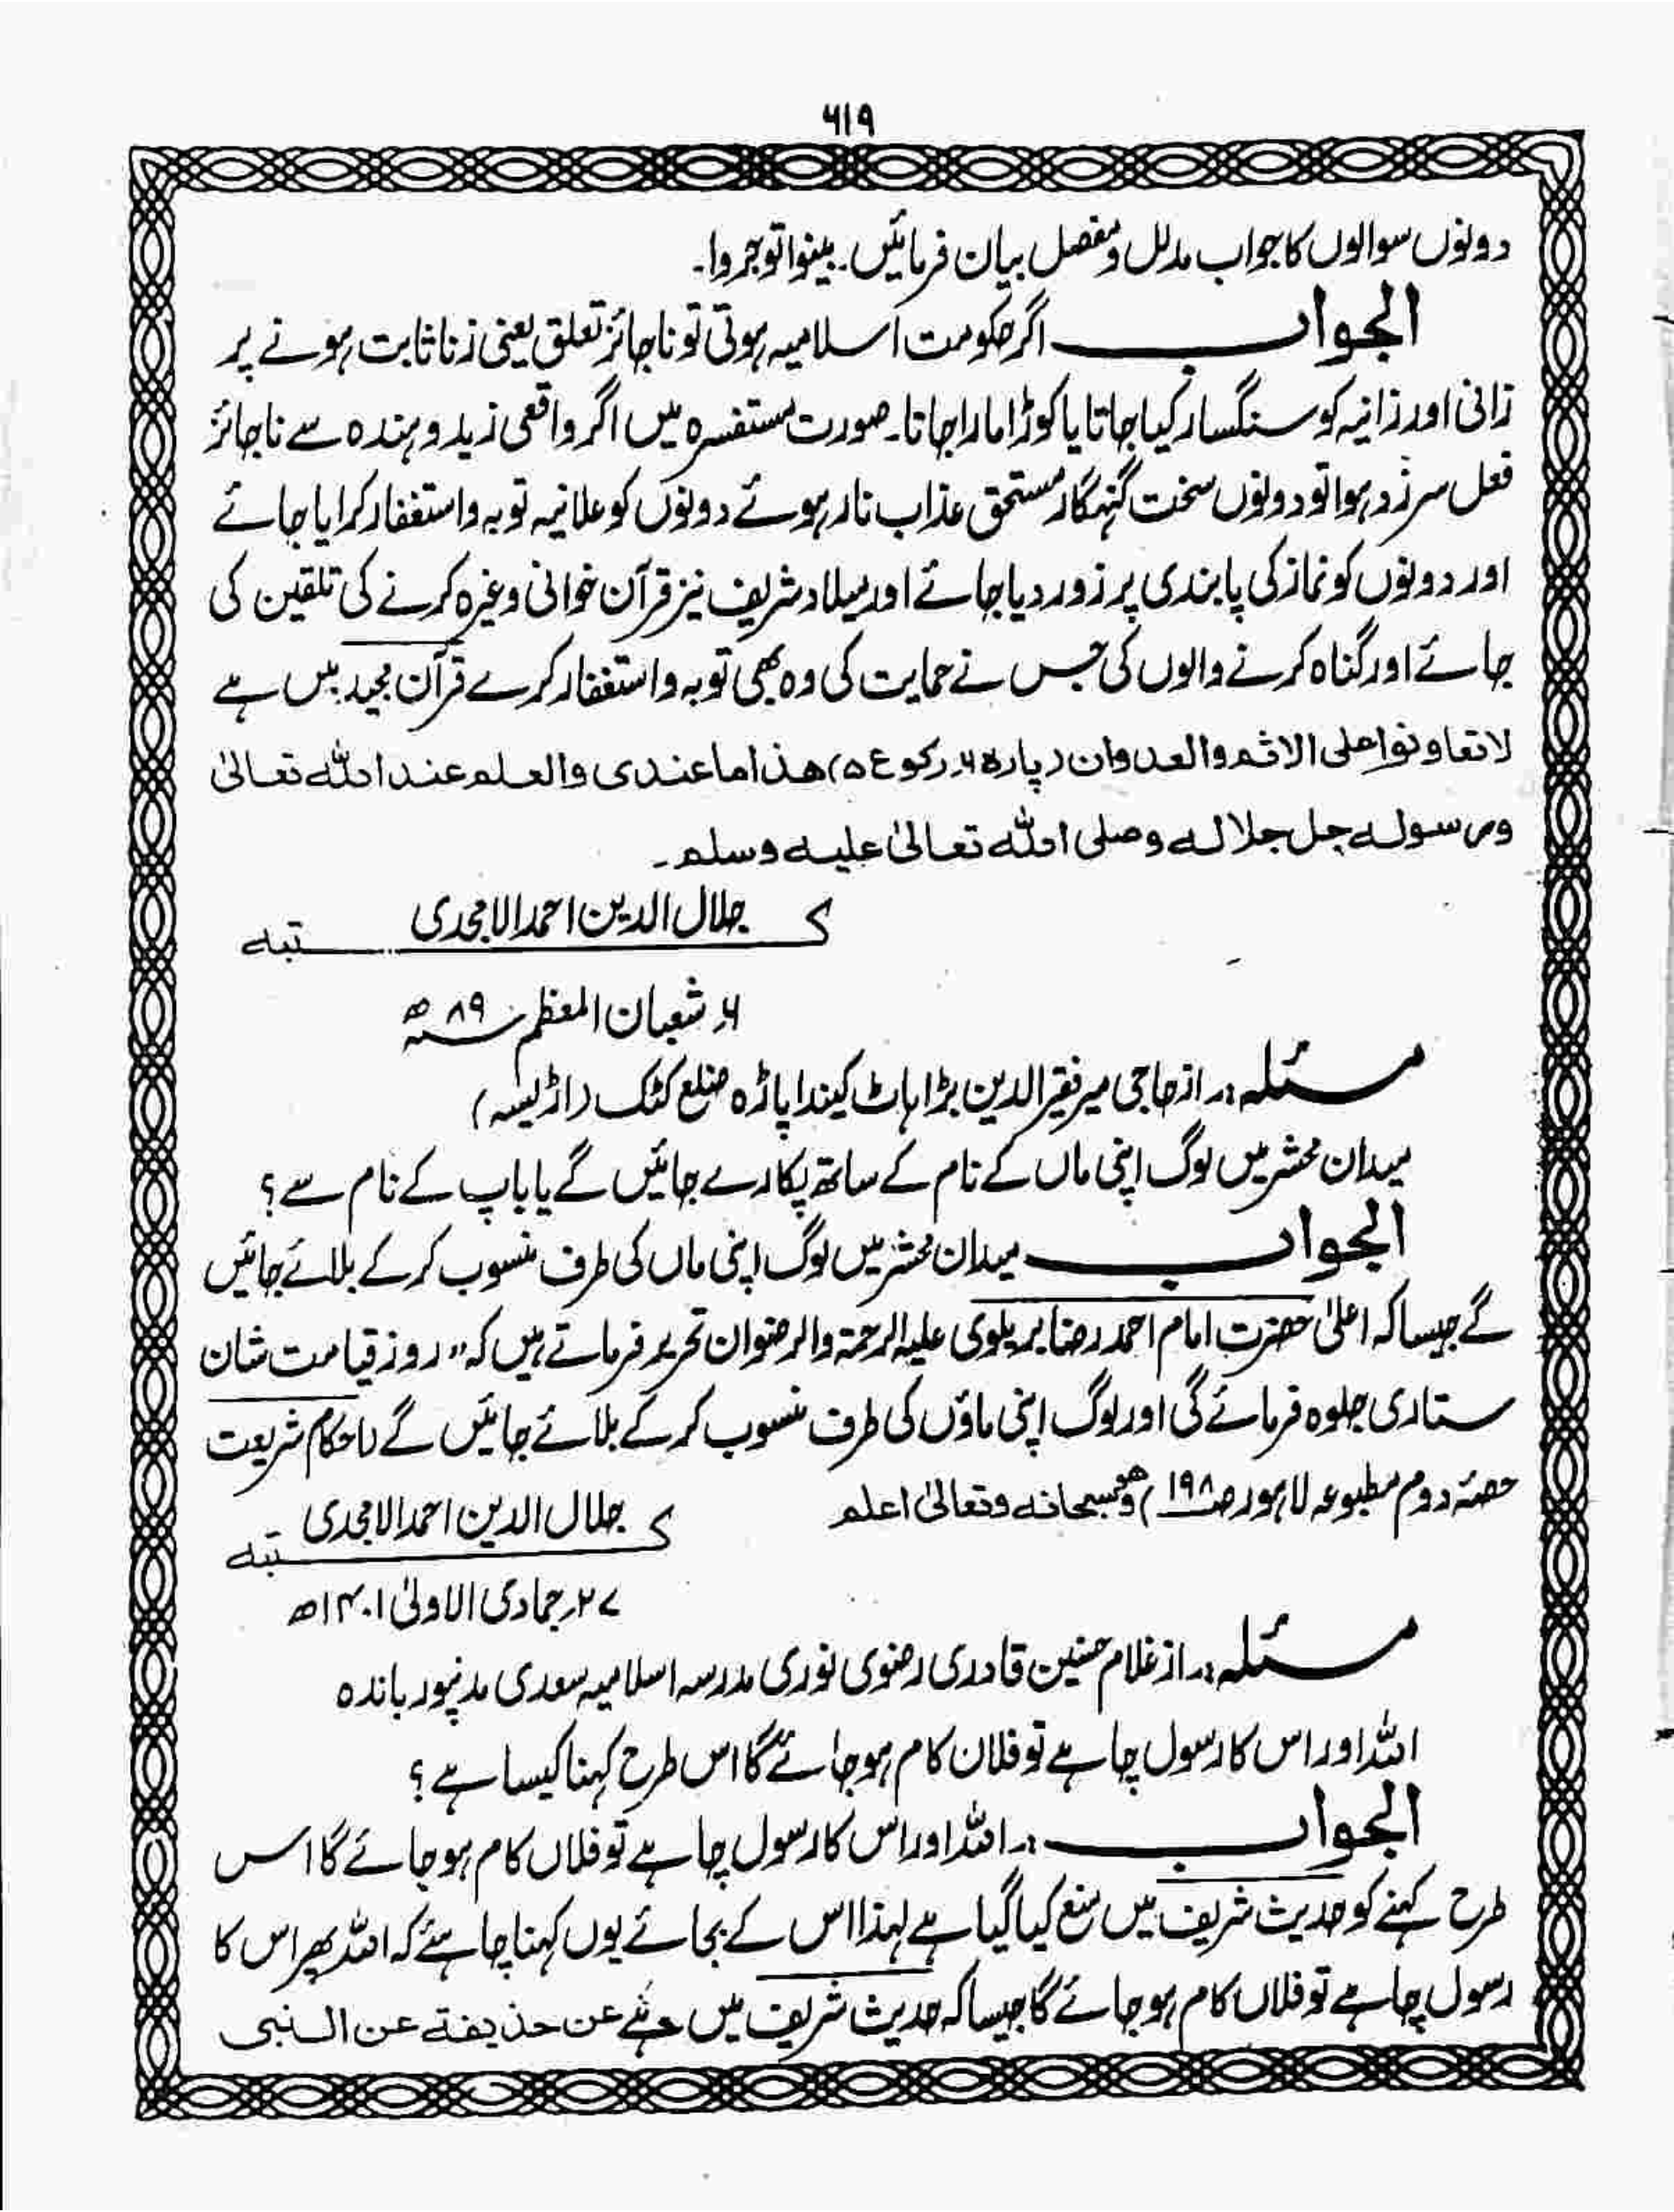 ۶۱۹
دونوں سوالوں کا جواب مدلل و مفصل بیان فرمائیں۔ بینوا توجروا۔
الجواب ــــــ اگر حکومت اسلامیہ ہوتی تو ناجائز تعلق یعنی زنا ثابت ہونے پر
زانی اور زانیہ کو سنگسار کیا جاتا یا کوڑا مارا جاتا۔ صورت مستفسرہ میں اگر واقعی زید و ہندہ سے ناجائز
فعل سرزد ہوا تو دونوں سخت گنہگار مستحق عذاب نار ہوئے دونوں کو علانیہ توبہ و استغفار کرایا جائے
اور دونوں کو نماز کی پابندی پر زور دیا جائے اور میلاد شریف نیز قرآن خوانی وغیرہ کرنے کی تلقین کی
جائے اور گناہ کرنے والوں کی جس نے حمایت کی وہ بھی توبہ و استغفار کرے قرآن مجید میں ہے
لا تعاونوا على الاثم والعدوان (پارہ ۶ رکوع ۵) هذا ما عندی والعلم عند الله تعالىٰ
ورسوله جل جلاله وصلى الله تعالىٰ عليه وسلم۔
کتبہ جلال الدین احمد الامجدی
۶؍ شعبان المعظم سنہ ۸۹ھ
مسئلہ:۔ از حاجی میر فقیر الدین بڑا ہاٹ کیندا پاڑہ ضلع کٹک (اڑیسہ)
میدان محشر میں لوگ اپنی ماں کے نام کے ساتھ پکارے جائیں گے یا باپ کے نام سے؟
الجواب ــــــ میدان محشر میں لوگ اپنی ماں کی طرف منسوب کر کے بلائے جائیں
گے جیسا کہ اعلیٰ حضرت امام احمد رضا بریلوی علیہ الرحمۃ والرضوان تحریر فرماتے ہیں کہ ״ روز قیامت شان
ستاری جلوہ فرمائے گی اور لوگ اپنی ماؤں کی طرف منسوب کر کے بلائے جائیں گے (احکام شریعت
حصہ دوم مطبوعہ لاہور ص ۱۹۸) وهو سبحانه وتعالىٰ اعلم
کتبہ جلال الدین احمد الامجدی
۲۷؍ جمادی الاولیٰ ۱۴۰۱ھ
مسئلہ:۔ از غلام حسنین قادری رضوی نوری مدرسہ اسلامیہ سعدی مدنپور باندہ
اللہ اور اس کا رسول چاہے تو فلان کام ہو جائے گا اس طرح کہنا کیسا ہے؟
الجواب ــــــ :۔ اللہ اور اس کا رسول چاہے تو فلاں کام ہو جائے گا اس
طرح کہنے کو حدیث شریف میں منع کیا گیا ہے لہذا اس کے بجائے یوں کہنا چاہئے کہ اللہ پھر اس کا
رسول چاہے تو فلاں کام ہو جائے گا جیسا کہ حدیث شریف میں ہے عن حذيفة عن النبى